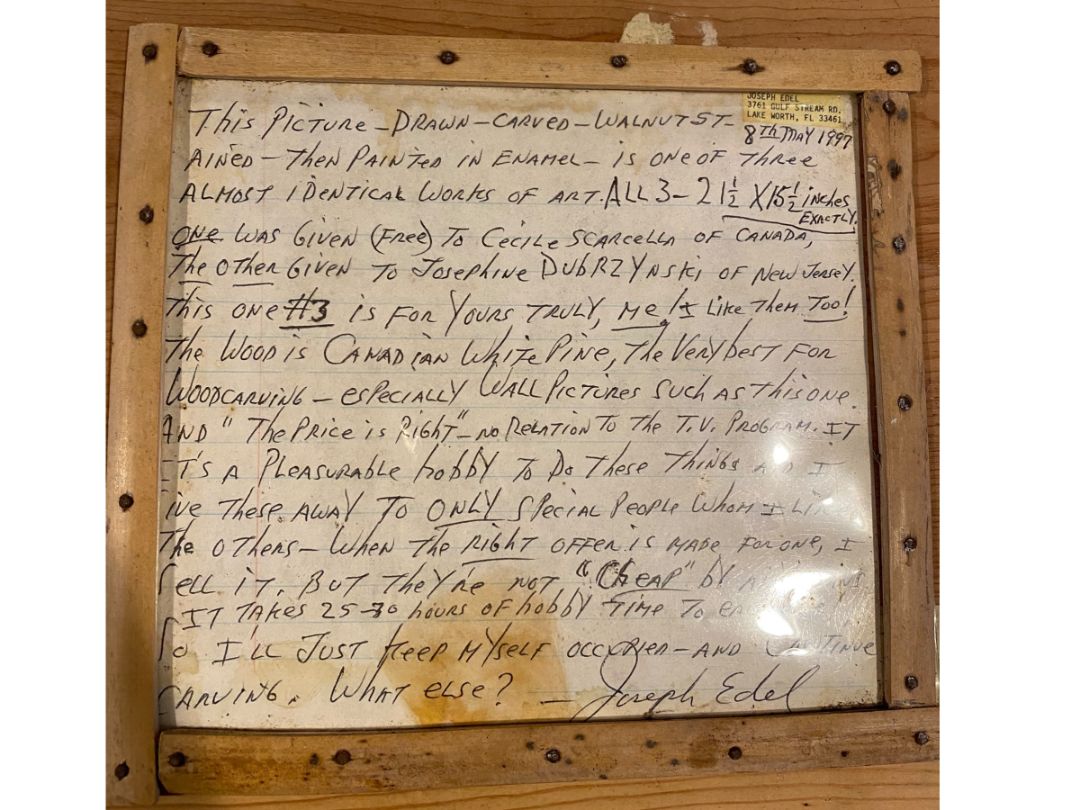 JOSEPH EDEL
3761 GULF STREAM RD.
LAKE WORTH, FL 33461
8TH MAY 1997
THIS PICTURE - DRAWN - CARVED - WALNUT ST-
AINED - THEN PAINTED IN ENAMEL - IS ONE OF THREE
ALMOST IDENTICAL WORKS OF ART. ALL 3 - 21 1/2 X 15 1/2 inches
EXACTLY.
ONE WAS GIVEN (FREE) TO CECILE SCARCELLA OF CANADA,
THE OTHER GIVEN TO JOSEPHINE DUBRZYNSKI OF NEW JERSEY.
THIS ONE #3 IS FOR YOURS TRULY, ME! I LIKE THEM TOO!
THE WOOD IS CANADIAN WHITE PINE, THE VERY BEST FOR
WOODCARVING - ESPECIALLY WALL PICTURES SUCH AS THIS ONE.
AND "THE PRICE IS RIGHT" - NO RELATION TO THE T.V. PROGRAM. IT
IT'S A PLEASURABLE HOBBY TO DO THESE THINGS AND I
IVE THESE AWAY TO ONLY SPECIAL PEOPLE WHOM I
THE OTHERS - WHEN THE RIGHT OFFER IS MADE FOR ONE, I
SELL IT. BUT THEY'RE NOT "CHEAP" BY
IT TAKES 25-30 HOURS OF HOBBY TIME TO
SO I'LL JUST KEEP MYSELF OCCUPIED - AND CONTINUE
CARVING. WHAT ELSE? - Joseph Edel